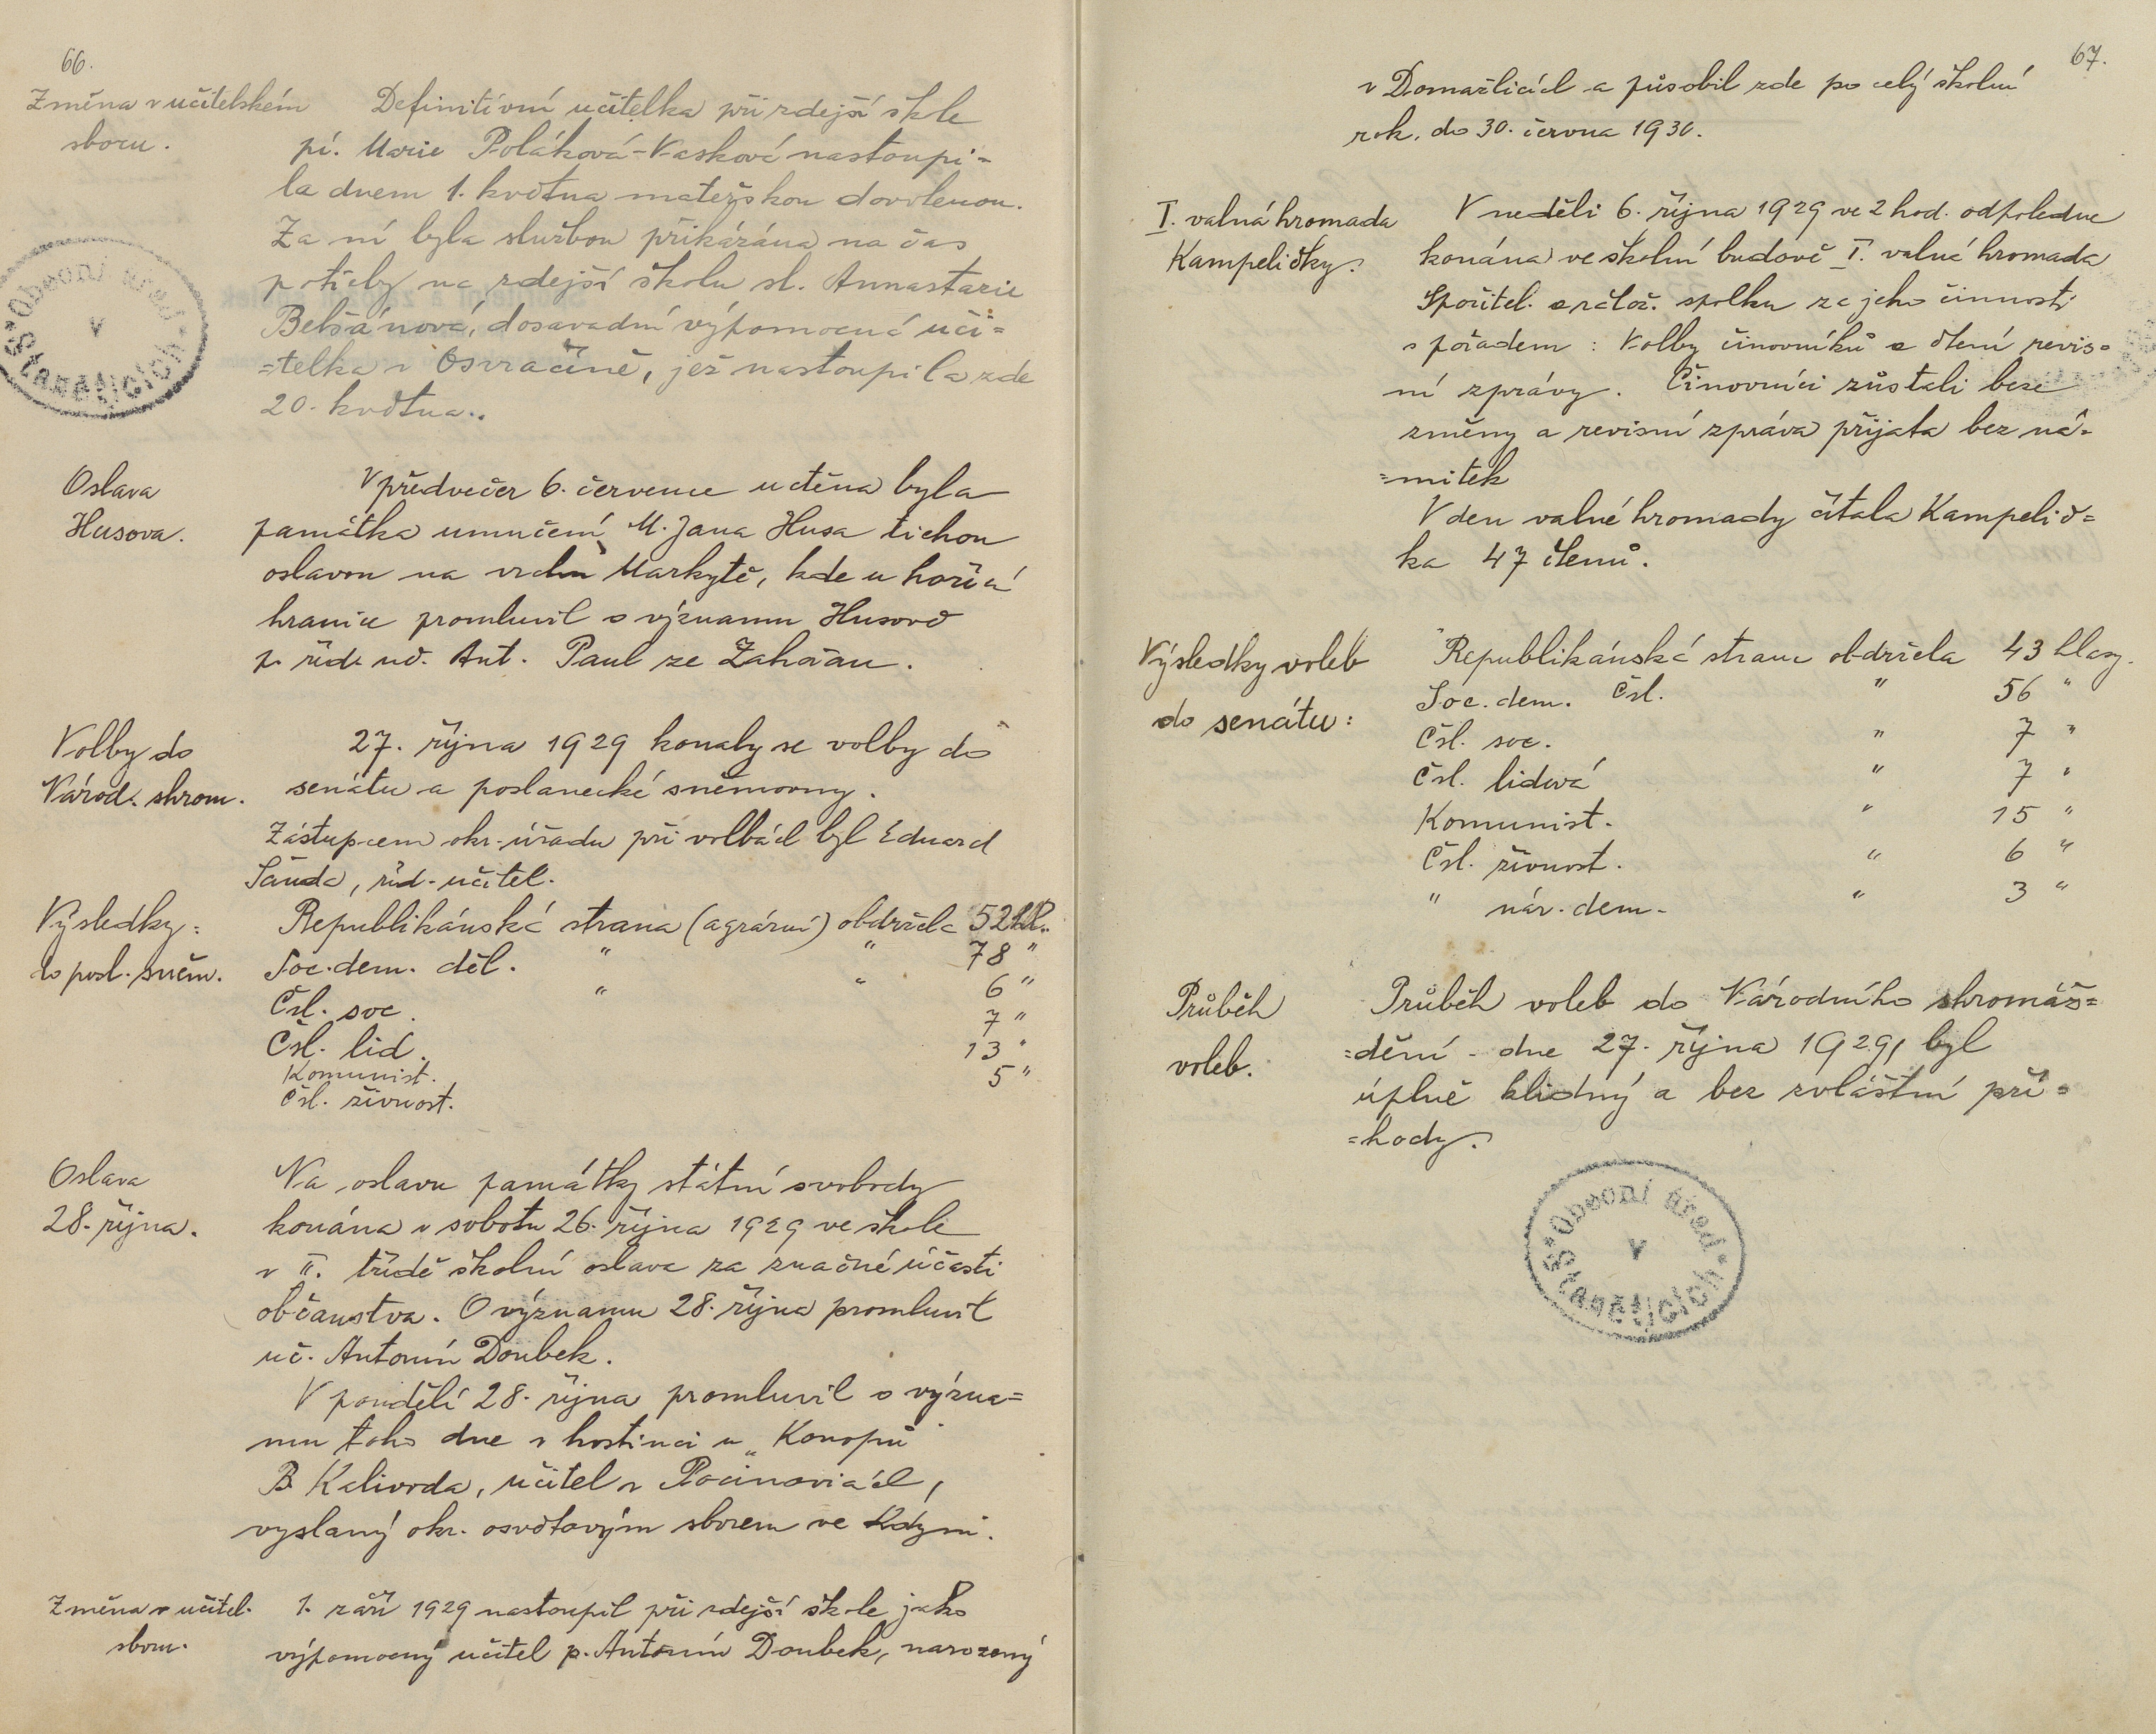 66.
Změna v učitelském
sboru.
Definitivní učitelka při zdejší škole
pí. Marie Poláková-Vasková nastoupi=
la dnem 1. května mateřskou dovolenou.
Za ní byla službou přikázána na čas
potřeby na zdejší školu sl. Annastazie
dosavadní výpomocná uči=
=telka v Osvračíně, jež nastoupila zde
20. května.
Obecní úřad
v
Staněticích
Oslava
Husova.
V předvečer 6. července uctěna byla
památka umučení M. Jana Husa tichou
oslavou na vrchu Markytě, kde u hořící
hranice promluvil o významu Husově
p. říd. uč. Ant. Paul ze Zahořan.
Volby do
Národ. shrom.
27. října 1929 konaly se volby do
senátu a poslanecké sněmovny.
Zástupcem okr. úřadu při volbách byl Eduard
Šanda, říd. učitel.
Výsledky:
do posl. sněm.
Republikánská strana (agrární) obdržela 52 hl.
Soc. dem. děl. " " 78 "
Čsl. soc. " " 6 "
Čsl. lid. 7 "
Komunist. 13 "
Čsl. živnost. 5 "
Oslava
28. října.
Na oslavu památky státní svobody
konána v sobotu 26. října 1929 ve škole
v II. třídě školní oslava za značné účasti
občanstva. O významu 28. října promluvil
uč. Antonín Doubek.
V pondělí 28. října promluvil o význa=
mu toho dne v hostinci u "Konopů"
B. Kalivoda, učitel v Pocinovicích,
vyslaný okr. osvětovým sborem ve Kdyni.
Změna v učitel.
sboru.
1. září 1929 nastoupil při zdejší škole jako
výpomocný učitel p. Antonín Doubek, narozený
67.
v Domažlicích a působil zde po celý školní
rok, do 30. června 1930.
I. valná hromada
Kampeličky.
V neděli 6. října 1929 ve 2 hod. odpoledne
konána ve školní budově I. valná hromada
Spořitel. a zálož. spolku za jeho činnosti
s pořadem: Volby činovníků a čtení revis=
ní zprávy. Činovníci zůstali beze
změny a revisní zpráva přijata bez ná=
=mitek
V den valné hromady čítala Kampelič=
ka 47 členů.
Výsledky voleb
do senátu:
Republikánská strana obdržela 43 hlasy.
Soc. dem. Čsl. " 56 "
Čsl. soc. " 7 "
Čsl. lidová " 7 "
Komunist. " 15 "
Čsl. živnost. " 6 "
" nár. dem. " 3 "
Průběh
voleb.
Průběh voleb do Národního shromáž=
=dění - dne 27. října 1929, byl
úplně klidný a bez zvláštní pří=
=hody.
Obecní úřad
v
Staněticích